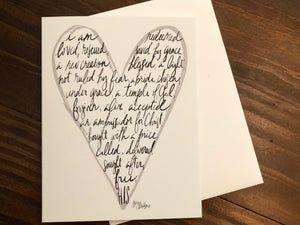 i am redeemed
loved, rescued saved by grace
a new creation blessed a light
not ruled by fear, a bride clothed
under grace a temple of God
forgiven, alive accepted
an ambassador for Christ
bought with a price
called, delivered
sought after
free
HIS